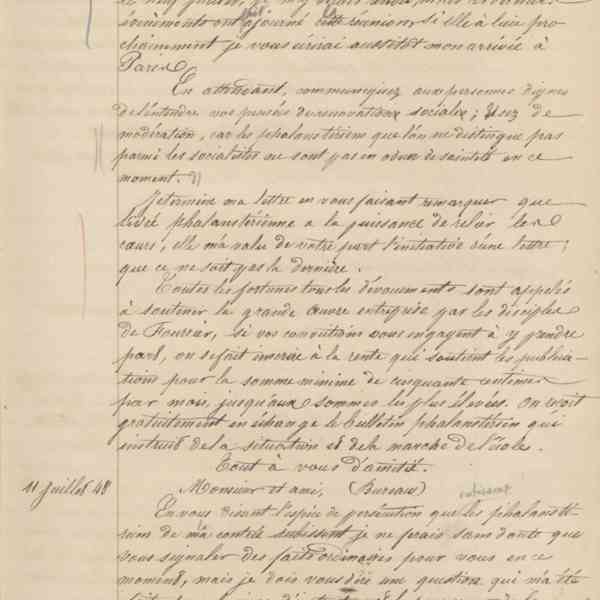 événements ont ajourné cette réunion, si elle a lieu pro-
chainement je vous écrirai aussitôt mon arrivée à
Paris.
En attendant, communiquez aux personnes dignes
de l'entendre vos pensées de rénovation sociale; Usez de
modération, car les phalanstériens que l'on ne distingue pas
parmi les socialistes ne sont pas en odeur de sainteté en ce
moment.
Je termine ma lettre en vous faisant remarquer que
l'idée phalanstérienne a la puissance de relier les
cœurs, elle m'a valu de votre part l'initiative d'une lettre;
que ce ne soit pas la dernière.
Toutes les fortunes tous les dévouements sont appelés
à soutenir la grande œuvre entreprise par les disciples
de Fourier, si vos convictions vous engagent à y prendre
part, on se fait inscrire à la rente qui soutient les publica-
tions pour la somme minime de cinquante centimes
par mois, jusqu'aux sommes les plus élevées. On reçoit
gratuitement en échange le bulletin phalanstérien qui
instruit de la situation et de la marche de l'école.
Tout à vous d'amitié.
11 Juillet 48 Monsieur et ami, (Bureau)
En vous disant l'espèce de persécution que les phalansté-
riens de ma contrée subissent je ne ferais sans doute que
vous signaler des faits ordinaires pour vous en ce
moment, mais je dois vous dire une question qui m'a été